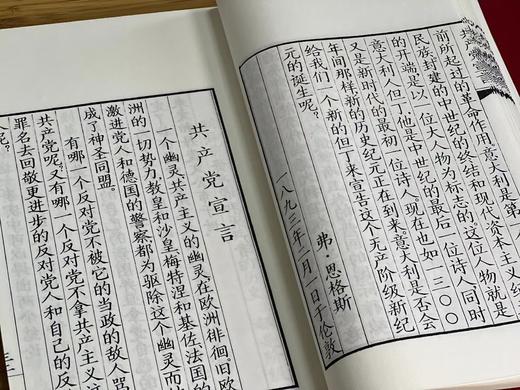 前所起过的革命作用意大利是
民族封建的中世纪的终结和现代资本主义纪
的开端是以一位大人物为标志的这位人物就是
意大利人但丁他是中世纪的最后一位诗人同时
又是新时代的最初一位诗人现在也如一三〇〇
年间那样新的历史纪元正在到来意大利是否会
给我们一个新的但丁来宣告这个无产阶级新纪
元的诞生呢？
弗·恩格斯
一八九三年二月一日于伦敦
共产党宣言
一个幽灵共产主义的幽灵在欧洲徘徊旧欧
洲的一切势力教皇和沙皇梅特涅和基佐法国的
激进党人和德国的警察都为驱除这个幽灵而
成了神圣同盟。
有哪一个反对党不被它的当政的敌人骂
共产党呢又有哪一个反对党不拿共产主义这
罪名去回敬更进步的反对党人和自己的反
人呢？